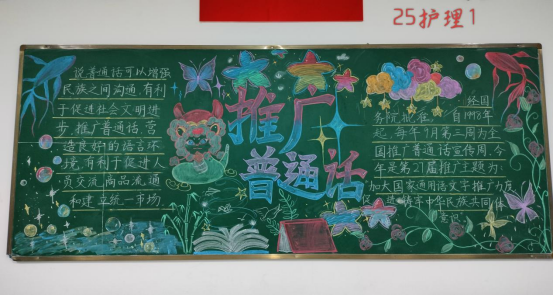 25护理1
说普通话可以增强
民族之间沟通,有利
于促进社会文明进
步,推广普通话,营
造良好的语言环
境,有利于促进人
员交流,商品流通
和建立统一市场
推广
普通话
经国
务院批准,自1998年
起,每年9月第三周为全
国推广普通话宣传周,今
年是第27届推广主题为:
加大国家通用语文字推广力度,
铸牢中华民族共同体
意识